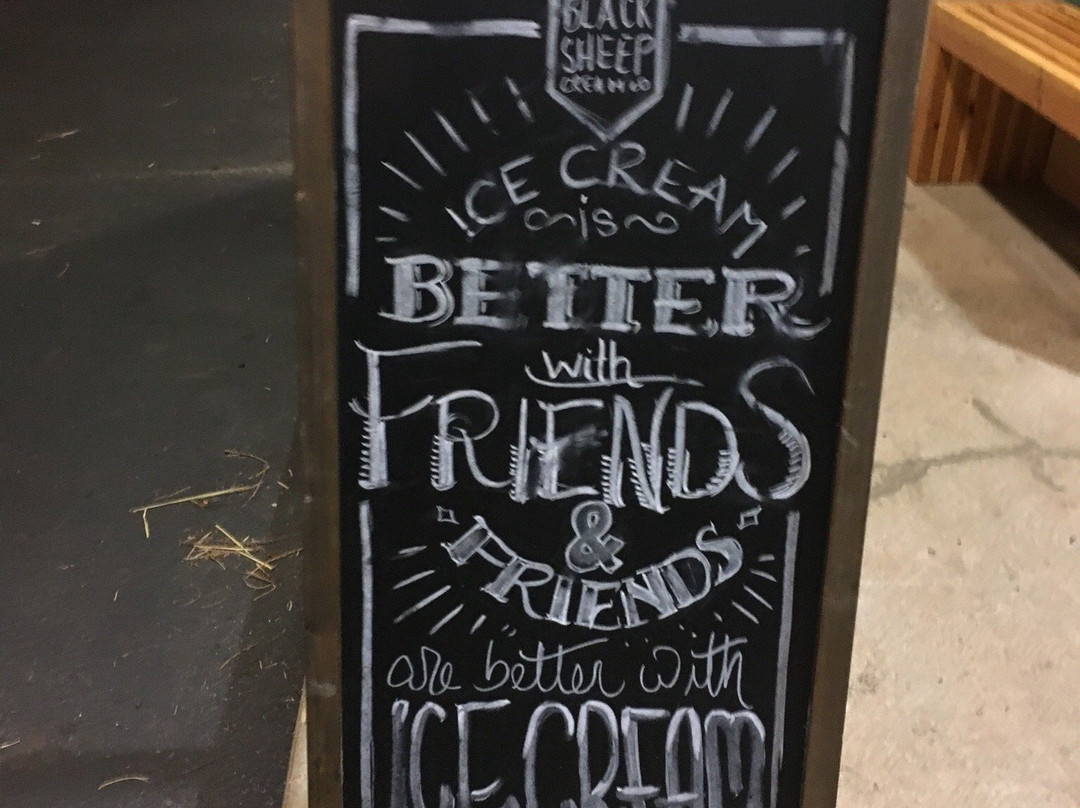 BLACK
SHEEP
CREAM CO
ICE CREAM
is
BETTER
with
FRIENDS
&
FRIENDS
are better with
ICE CREAM